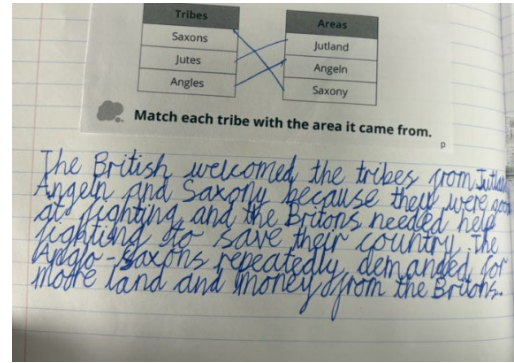 Tribes
Areas
Saxons
Jutland
Jutes
Angeln
Angles
Saxony
Match each tribe with the area it came from.
p
The British welcomed the tribes from Jutland
Angeln and Saxony because they were good
at fighting and the Britons needed help
fighting to save their country. The
Anglo-Saxons repeatedly demanded for
more land and money from the Britons.